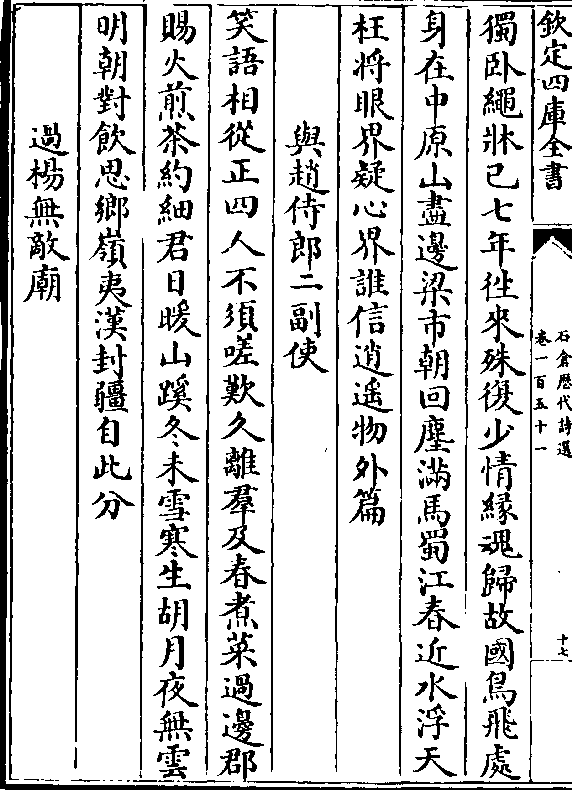 欽定四庫全書
石倉歷代詩選
卷一百五十一
十七
獨卧繩牀已七年徃來殊復少情縁魂歸故國鳥飛處
身在中原山盡邊梁市朝回塵滿馬蜀江春近水浮天
枉將眼界疑心界誰信逍遥物外篇
與趙侍郎二副使
笑語相從正四人不須嗟歎久離羣及春煮菜過邊郡
賜火煎茶約細君日暖山蹊冬未雪寒生胡月夜無雲
明朝對飲思鄉嶺夷漢封疆自此分
過楊無敵廟